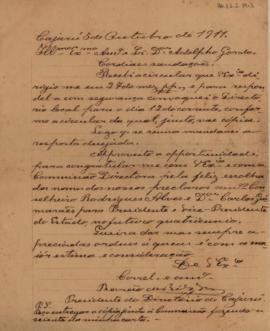 Cajurú 5 de Outubro de 1911.
Illmo. Exmo. Amo. Sr. Dr. Adolpho Gordo
Cordiaes saudações.
Recebi a circular que V. Exa. di-
rigio me em 29 do mez pp., e para respon-
der com segurança convoquei o Directo-
rio local para o dia 12 do corrente, confor-
me a circular da qual, junto, vae cópia.
Logo q. se reuna mandarei a
resposta desejada.
Approveito a opportunidade
para congratular me com V. Exa. e com a
Commissão Directora pela feliz escolha
dos nomes dos nossos preclaros
selheiro Rodrigues Alves e Dr. Carlos Gui-
marães para Presidente e Vice-Presidente
do Estado no futuro quatriennio.
Queira dar-me sempre a-
preciadas ordens á quem é com a ma-
ior estima e consideração
De V. Exa.
Correl. e amo.
Presidente do Directorio de Cajurú.
P.S.